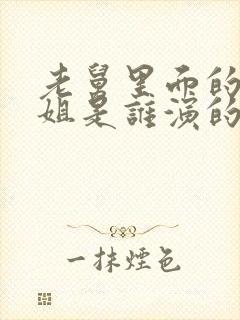 老舅里面的
姐是誰演的
一抹煙色